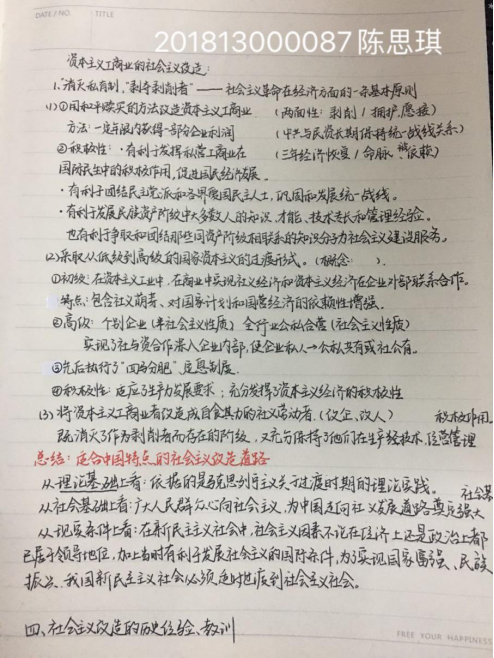 DATE / NO. TITLE
201813000087陈思琪
资本主义工商业的社会主义改造:
1."消灭私有制","剥夺剥削者"——社会主义革命在经济方面的一条基本原则
(1)①用和平赎买的方法改造资本主义工商业 (两面性:剥削/拥护,愿接)
方法:一定年限内获得一部分企业利润 (中共与民资长期保持统一战线关系)
②积极性:·有利于发挥私营工商业在 (三年经济恢复/命脉 依赖)
国际民生中的积极作用,促进国民经济发展。
·有利于团结民主党派和各界爱国民主人士,巩固和发展统一战线。
·有利于发展民族资产阶级中大多数人的知识、才能、技术专长和管理经验。
也有利于争取和团结那些同资产阶级相联系的知识分子为社会主义建设服务。
(2)采取从低级到高级的国家资本主义的过渡形式。(概念: ).
①初级:在资本主义工业中,在商业中实现社义经济和资本主义经济在企业外部联系合作。
特点:包含社义萌芽、对国家计划和国营经济的依赖性增强。
②高级:个别企业(半社会主义性质) 全行业公私合营(社会主义性质)
实现了社与资合作深入企业内部,使企业私人→公私共有或社公有。
③先后执行了"四马分肥",定息制度.
④积极性:适应了生产力发展要求;充分发挥了资本主义经济的积极性
(3)将资本主义工商业者改造成自食其力的社义劳动者.(改企、改人) 积极作用。
既消灭了作为剥削者而存在的阶级,又充分保持了他们在生产经技术,经营管理
总结:适合中国特点的社会主义改造道路
从理论基础上看:依据的是马克思列导主义关于过渡时期的理论实践。 社会基
从社会基础上看:广大人民群众心向社会主义,为中国走向社义发展道路奠定强大
从现实条件上看:在新民主主义社会中,社会主义因素不论在经济上还是政治上都
已居于领导地位,加上当时有利于发展社会主义的国际条件,为实现国家富强、民族
振兴,我国新民主主义社会必须适时过渡到社会主义社会。
四、社会主义改造的历史经验、教训
FREE YOUR HAPPINESS